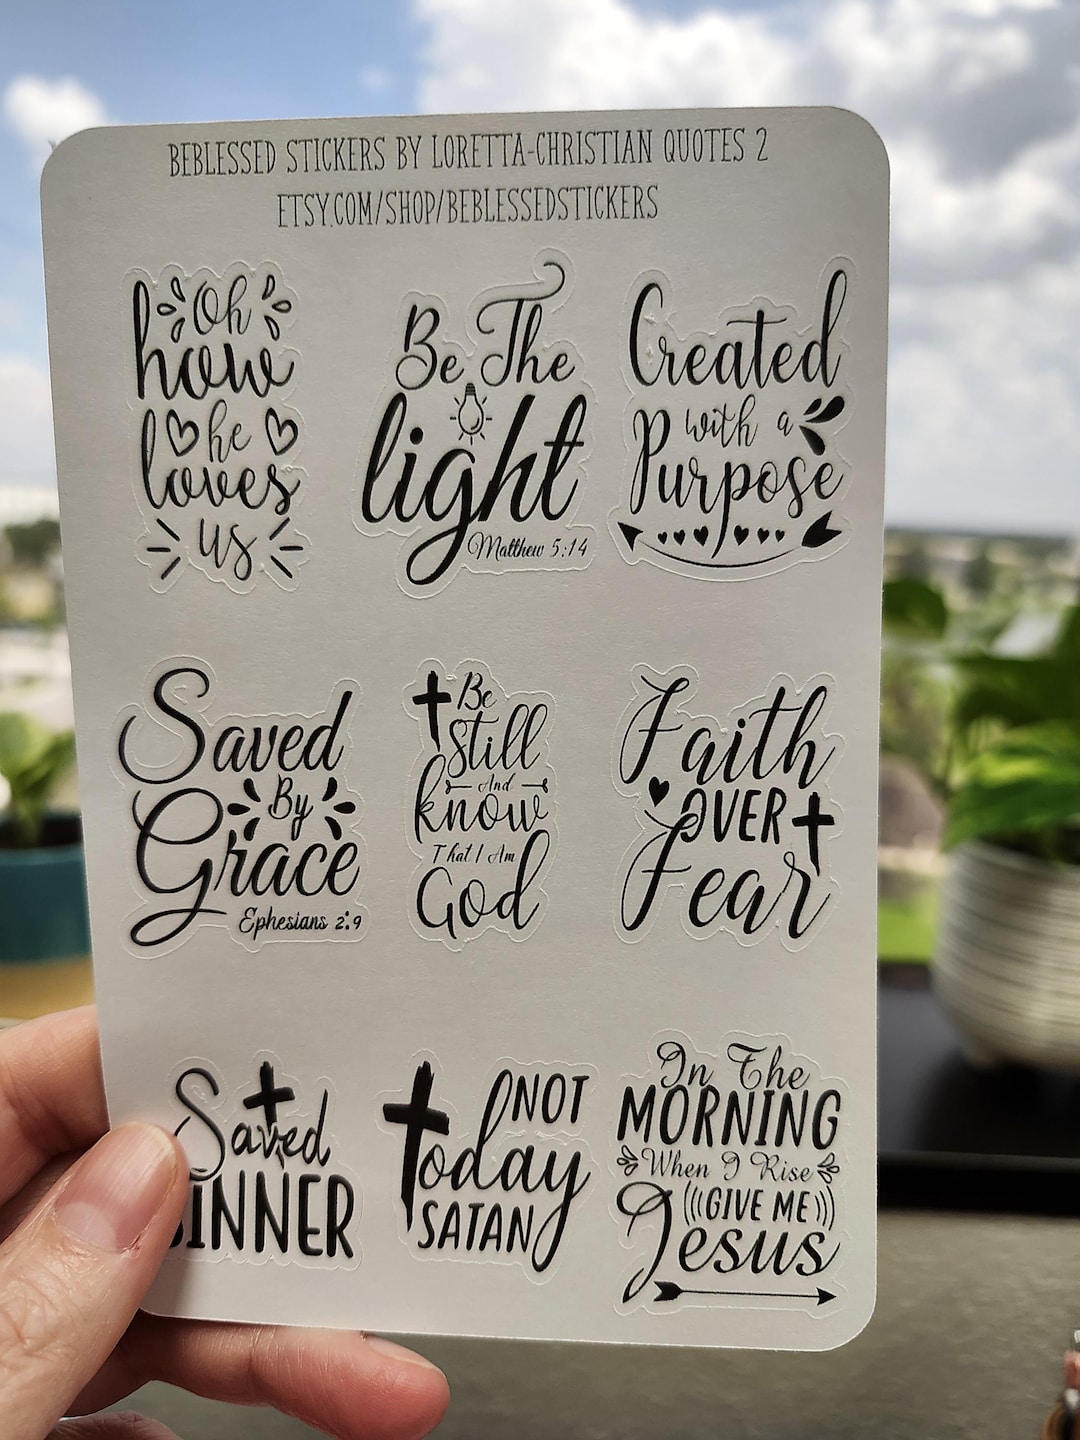 BEBLESSED STICKERS BY LORETTA-CHRISTIAN QUOTES 2
ETSY.COM/SHOP/BEBLESSEDSTICKERS
Oh
how
he
loves
us
Be The
light
Matthew 5:14
Created
with a
Purpose
Saved
By
Grace
Ephesians 2:9
Be
Still
And
know
That I Am
God
Faith
OVER
Fear
Saved
SINNER
NOT
today
SATAN
In The
MORNING
When I Rise
GIVE ME
Jesus